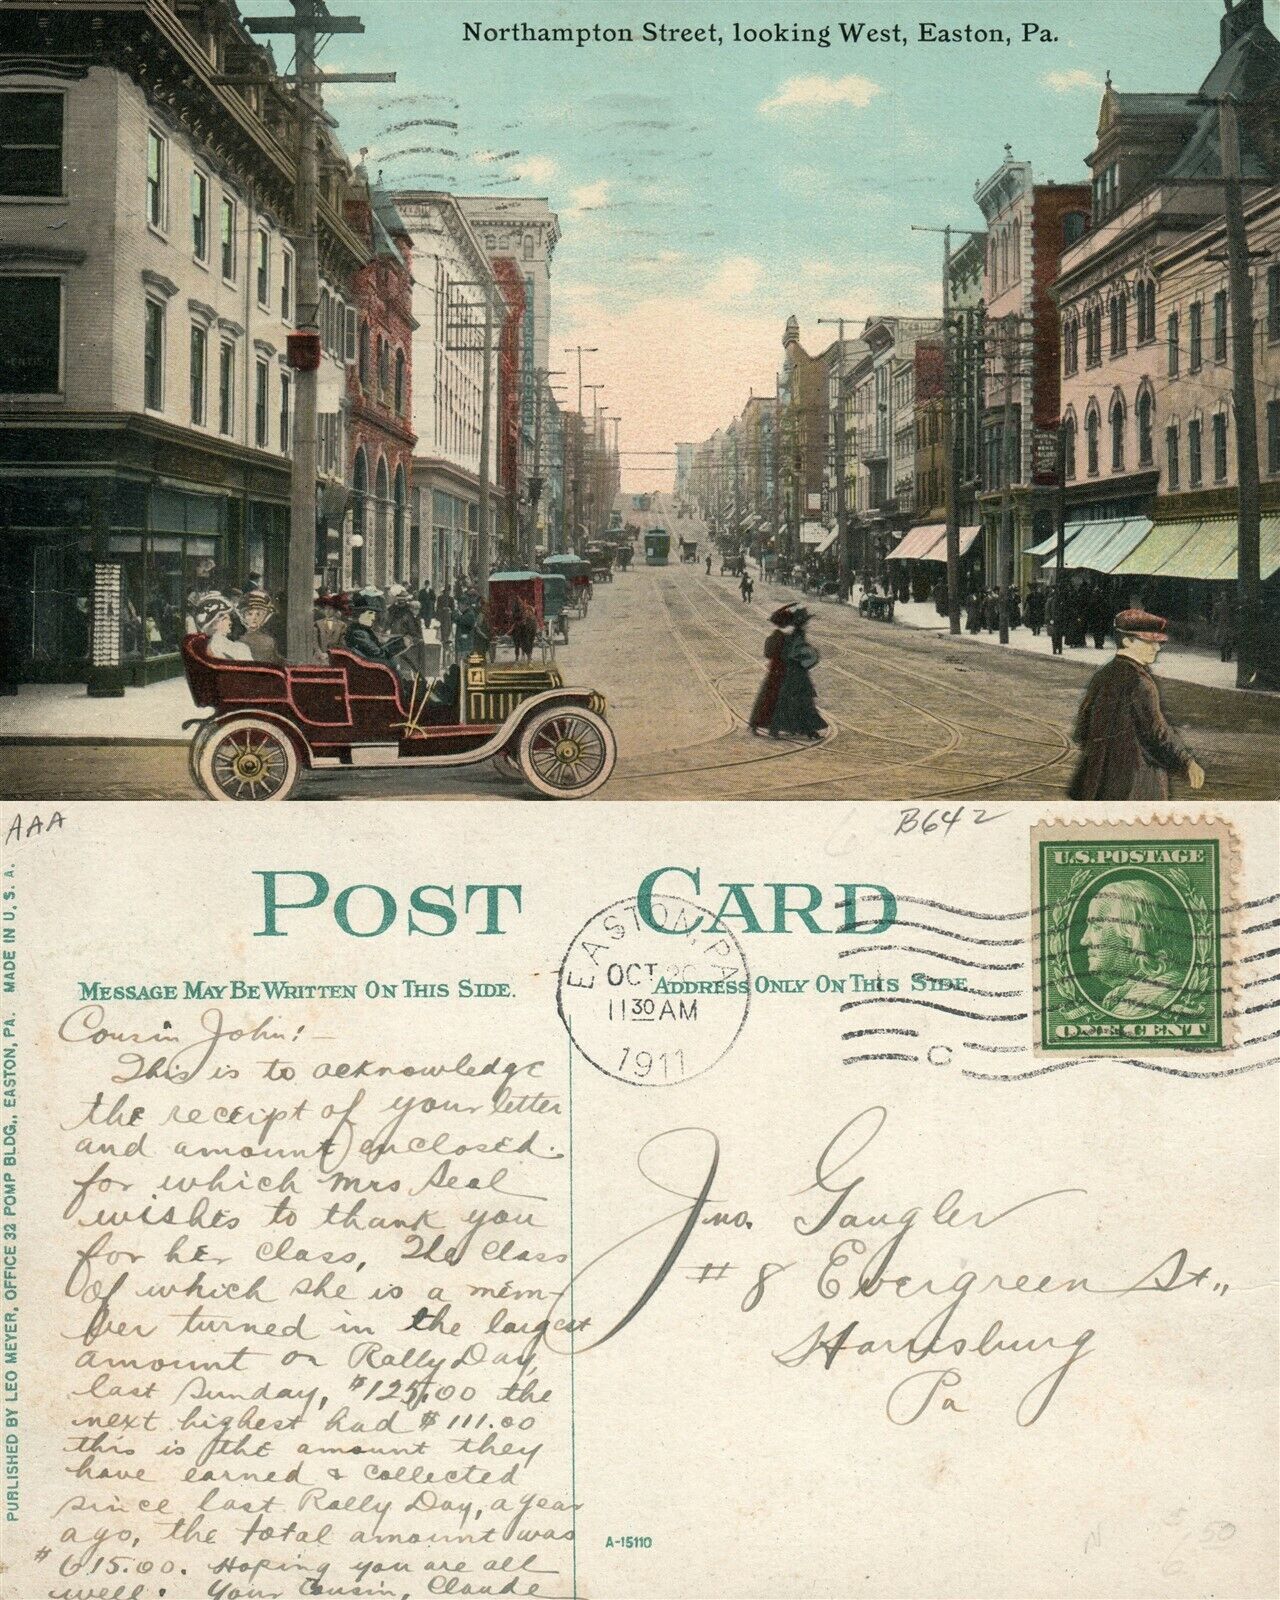 Northampton Street, looking West, Easton, Pa.
AAA
B642
U.S. POSTAGE
POST CARD
EASTON, PA.
OCT 20
11 30 AM
1911
C
MESSAGE MAY BE WRITTEN ON THIS SIDE.
ADDRESS ONLY ON THIS SIDE
PUBLISHED BY LEO MEYER, OFFICE 32 POMP BLDG., EASTON, PA. MADE IN U. S. A.
Cousin John:-
This is to acknowledge
the receipt of your letter
and amount enclosed.
for which Mrs Seal
wishes to thank you
for her class, The class
of which she is a mem-
ber turned in the largest
amount on Rally Day,
last Sunday, $125.00 the
next highest had $111.00
this is the amount they
have earned & collected
since last Rally Day, a year
ago, the total amount was
$615.00. Hoping you are all
well. Your Cousin, Claude
Jno. Gaugler
# 8 Evergreen St.,
Harrisburg
Pa
A-15110
50